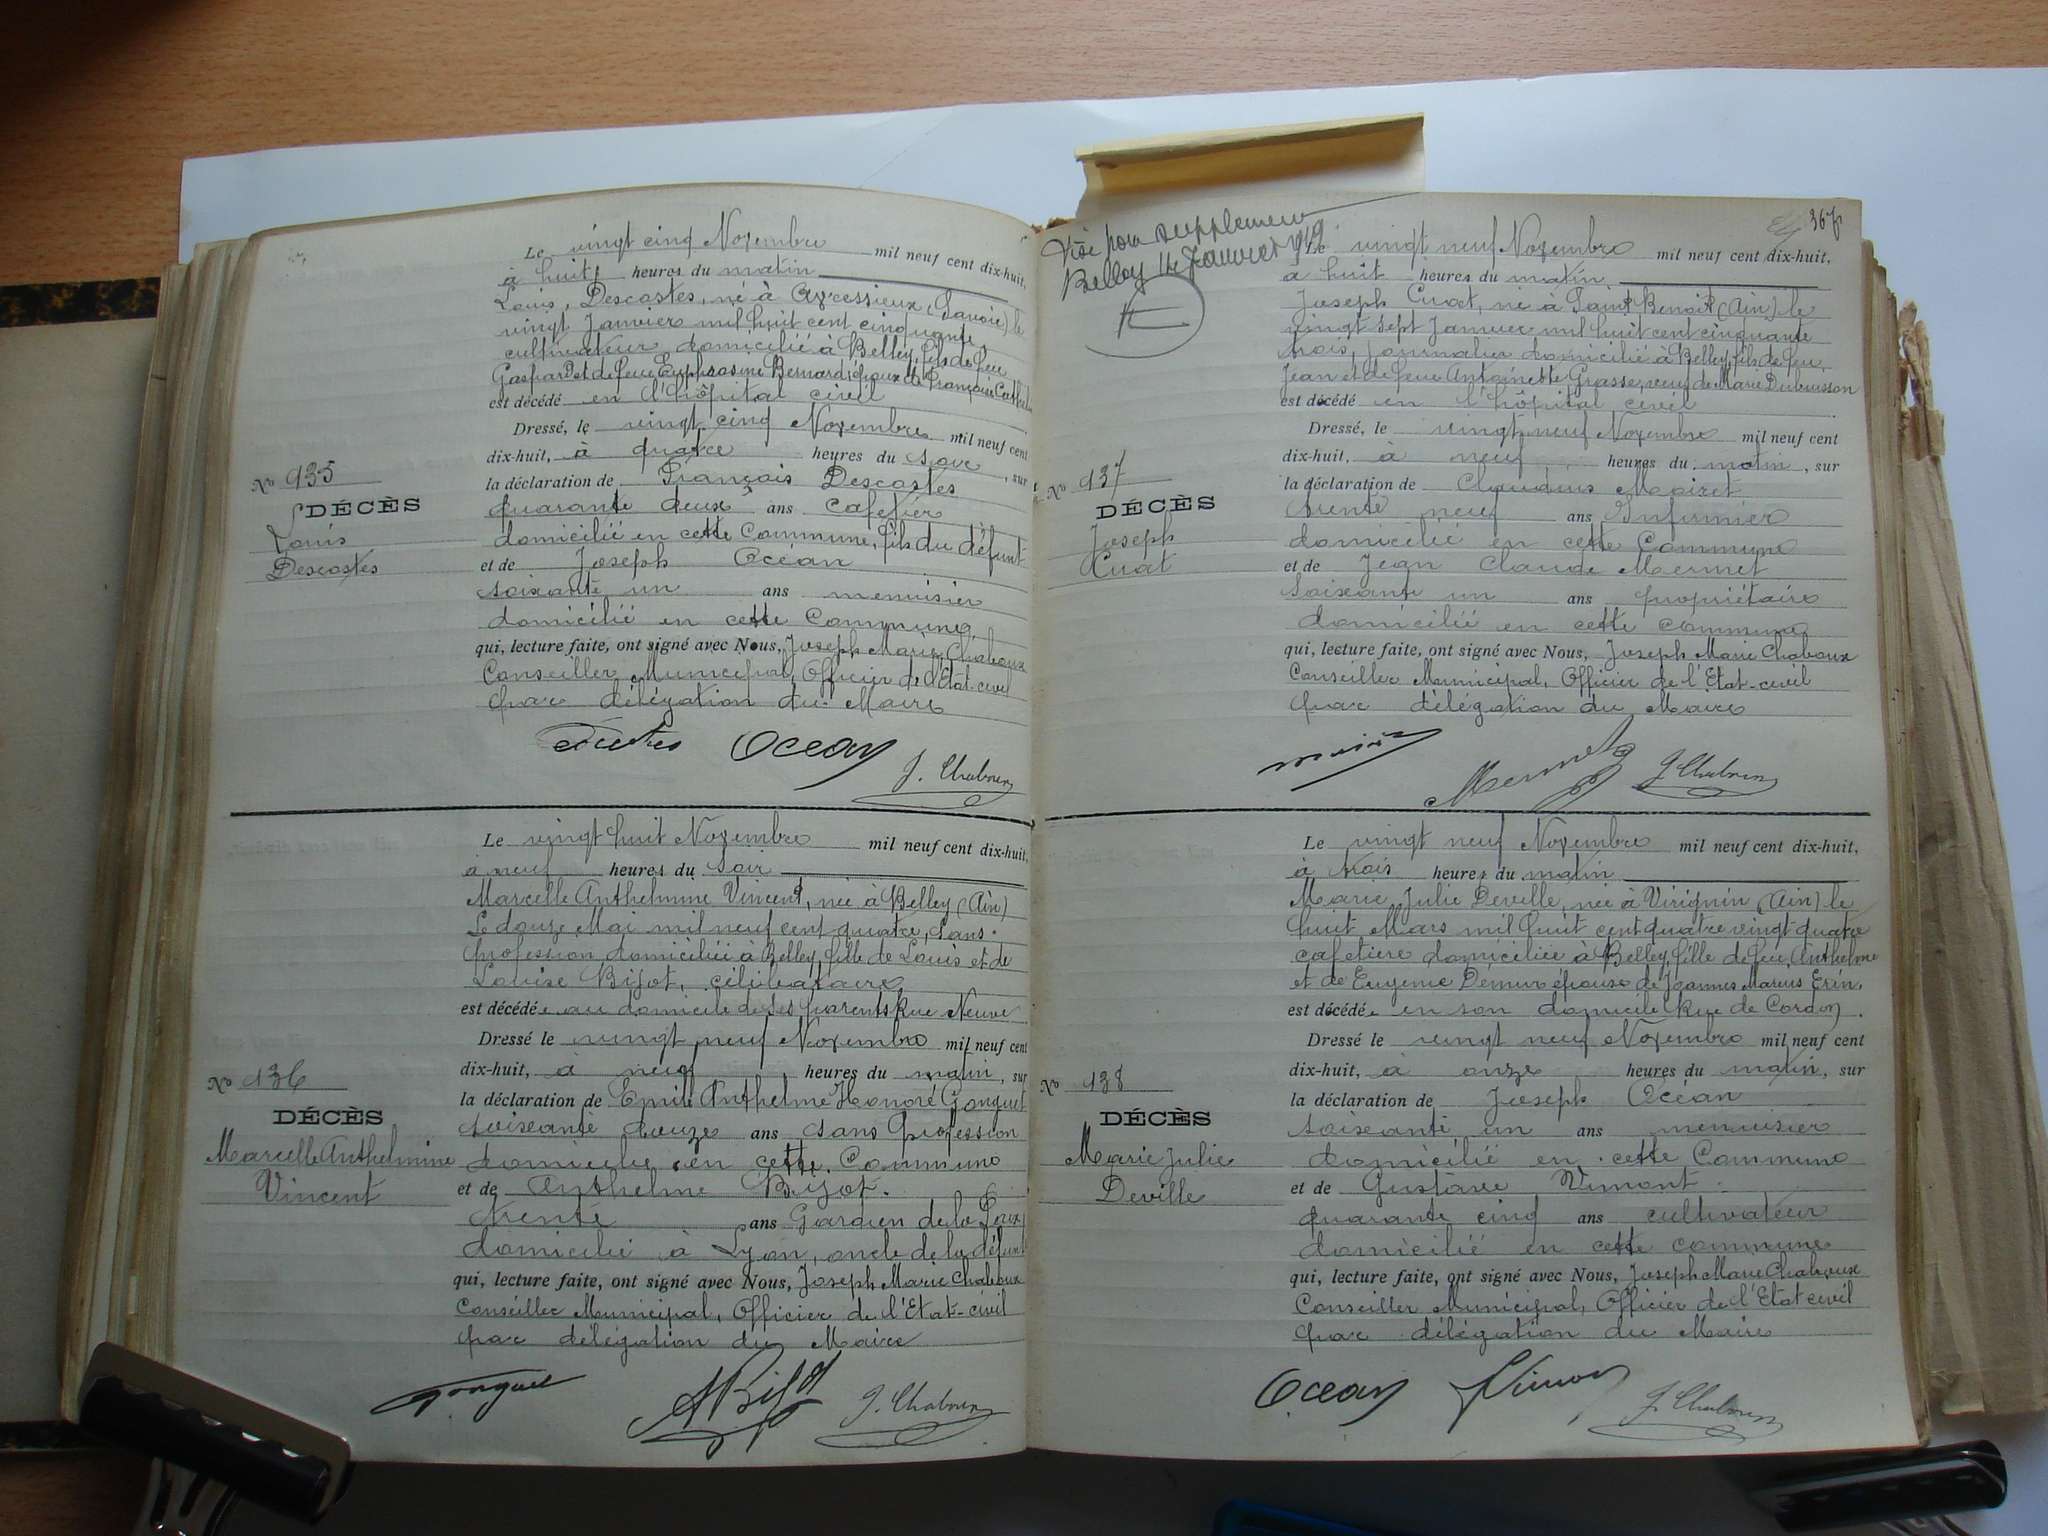 Le vingt cinq Novembre mil neuf cent dix-huit,
à huit heures du matin
Louis, Descostes, né à Avressieux, (Savoie) le
vingt Janvier mil huit cent cinquante
cultivateur domicilié à Belley, fils de feu
Gaspard et de feue Euphrosine Bernard, époux de Françoise
est décédé en l'hôpital civil
Dressé, le vingt cinq Novembre mil neuf cent
dix-huit, à quatre heures du soir, sur
la déclaration de François Descostes
quarante deux ans cafetier
domicilié en cette Commune, fils du défunt
et de Joseph Océan
soixante un ans menuisier
domicilié en cette Commune
qui, lecture faite, ont signé avec Nous, Joseph Marie Chaboux
Conseiller Municipal, Officier de l'Etat-civil
par délégation du Maire
No 135
DÉCÈS
Louis
Descostes
Océan J. Chaboux
Le vingt huit Novembre mil neuf cent dix-huit,
à neuf heures du soir
Marcelle Anthelmine Vincent, née à Belley (Ain)
le douze Mai mil neuf cent quatre, sans
profession domiciliée à Belley, fille de Louis et de
Louise Bijot, célibataire
est décédée au domicile de ses parents Rue Neuve
Dressé le vingt neuf Novembre mil neuf cent
dix-huit, à neuf heures du matin, sur
la déclaration de Emile Anthelme Honoré Gonguet
soixante douze ans sans profession
domicilié en cette Commune
et de Anthelme Bijot.
trente ans Gardien de la Paix
domicilié à Lyon, oncle de la défunte
qui, lecture faite, ont signé avec Nous, Joseph Marie Chaboux
Conseiller Municipal, Officier de l'Etat-civil
par délégation du Maire
No 136
DÉCÈS
Marcelle Anthelmine
Vincent
Gonguet ABijot J. Chaboux
367
Visé pour supplément
Belley 14 Janvier 1919
Le vingt neuf Novembre mil neuf cent dix-huit,
à huit heures du matin
Joseph Cuat, né à Saint Benoit (Ain) le
vingt sept Janvier mil huit cent cinquante
trois, journalier domicilié à Belley, fils de feu
Jean et de feue Antoinette Grasse, veuf de Marie Dubuisson
est décédé en l'hôpital civil
Dressé, le vingt neuf Novembre mil neuf cent
dix-huit, à neuf heures du matin, sur
la déclaration de Claudius Mairet
trente neuf ans Infirmier
domicilié en cette Commune
et de Jean Claude Mermet
soixante un ans propriétaire
domicilié en cette commune
qui, lecture faite, ont signé avec Nous, Joseph Marie Chaboux
Conseiller Municipal, Officier de l'Etat-civil
par délégation du Maire
No 137
DÉCÈS
Joseph
Cuat
Mermet J. Chaboux
Le vingt neuf Novembre mil neuf cent dix-huit,
à trois heures du matin
Marie Julie Deville, née à Virignin (Ain) le
huit Mars mil huit cent quatre vingt quatre
cafetière domiciliée à Belley, fille de feu Anthelme
et de Eugénie Démur épouse de Joannes Marius Erin,
est décédée en son domicile Rue de Cordon.
Dressé le vingt neuf Novembre mil neuf cent
dix-huit, à onze heures du matin, sur
la déclaration de Joseph Océan
soixante un ans menuisier
domicilié en cette Commune
et de Gustave Vimont
quarante cinq ans cultivateur
domicilié en cette commune
qui, lecture faite, ont signé avec Nous, Joseph Marie Chaboux
Conseiller Municipal, Officier de l'Etat civil
par délégation du Maire
No 138
DÉCÈS
Marie Julie
Deville
Océan Vimont J. Chaboux